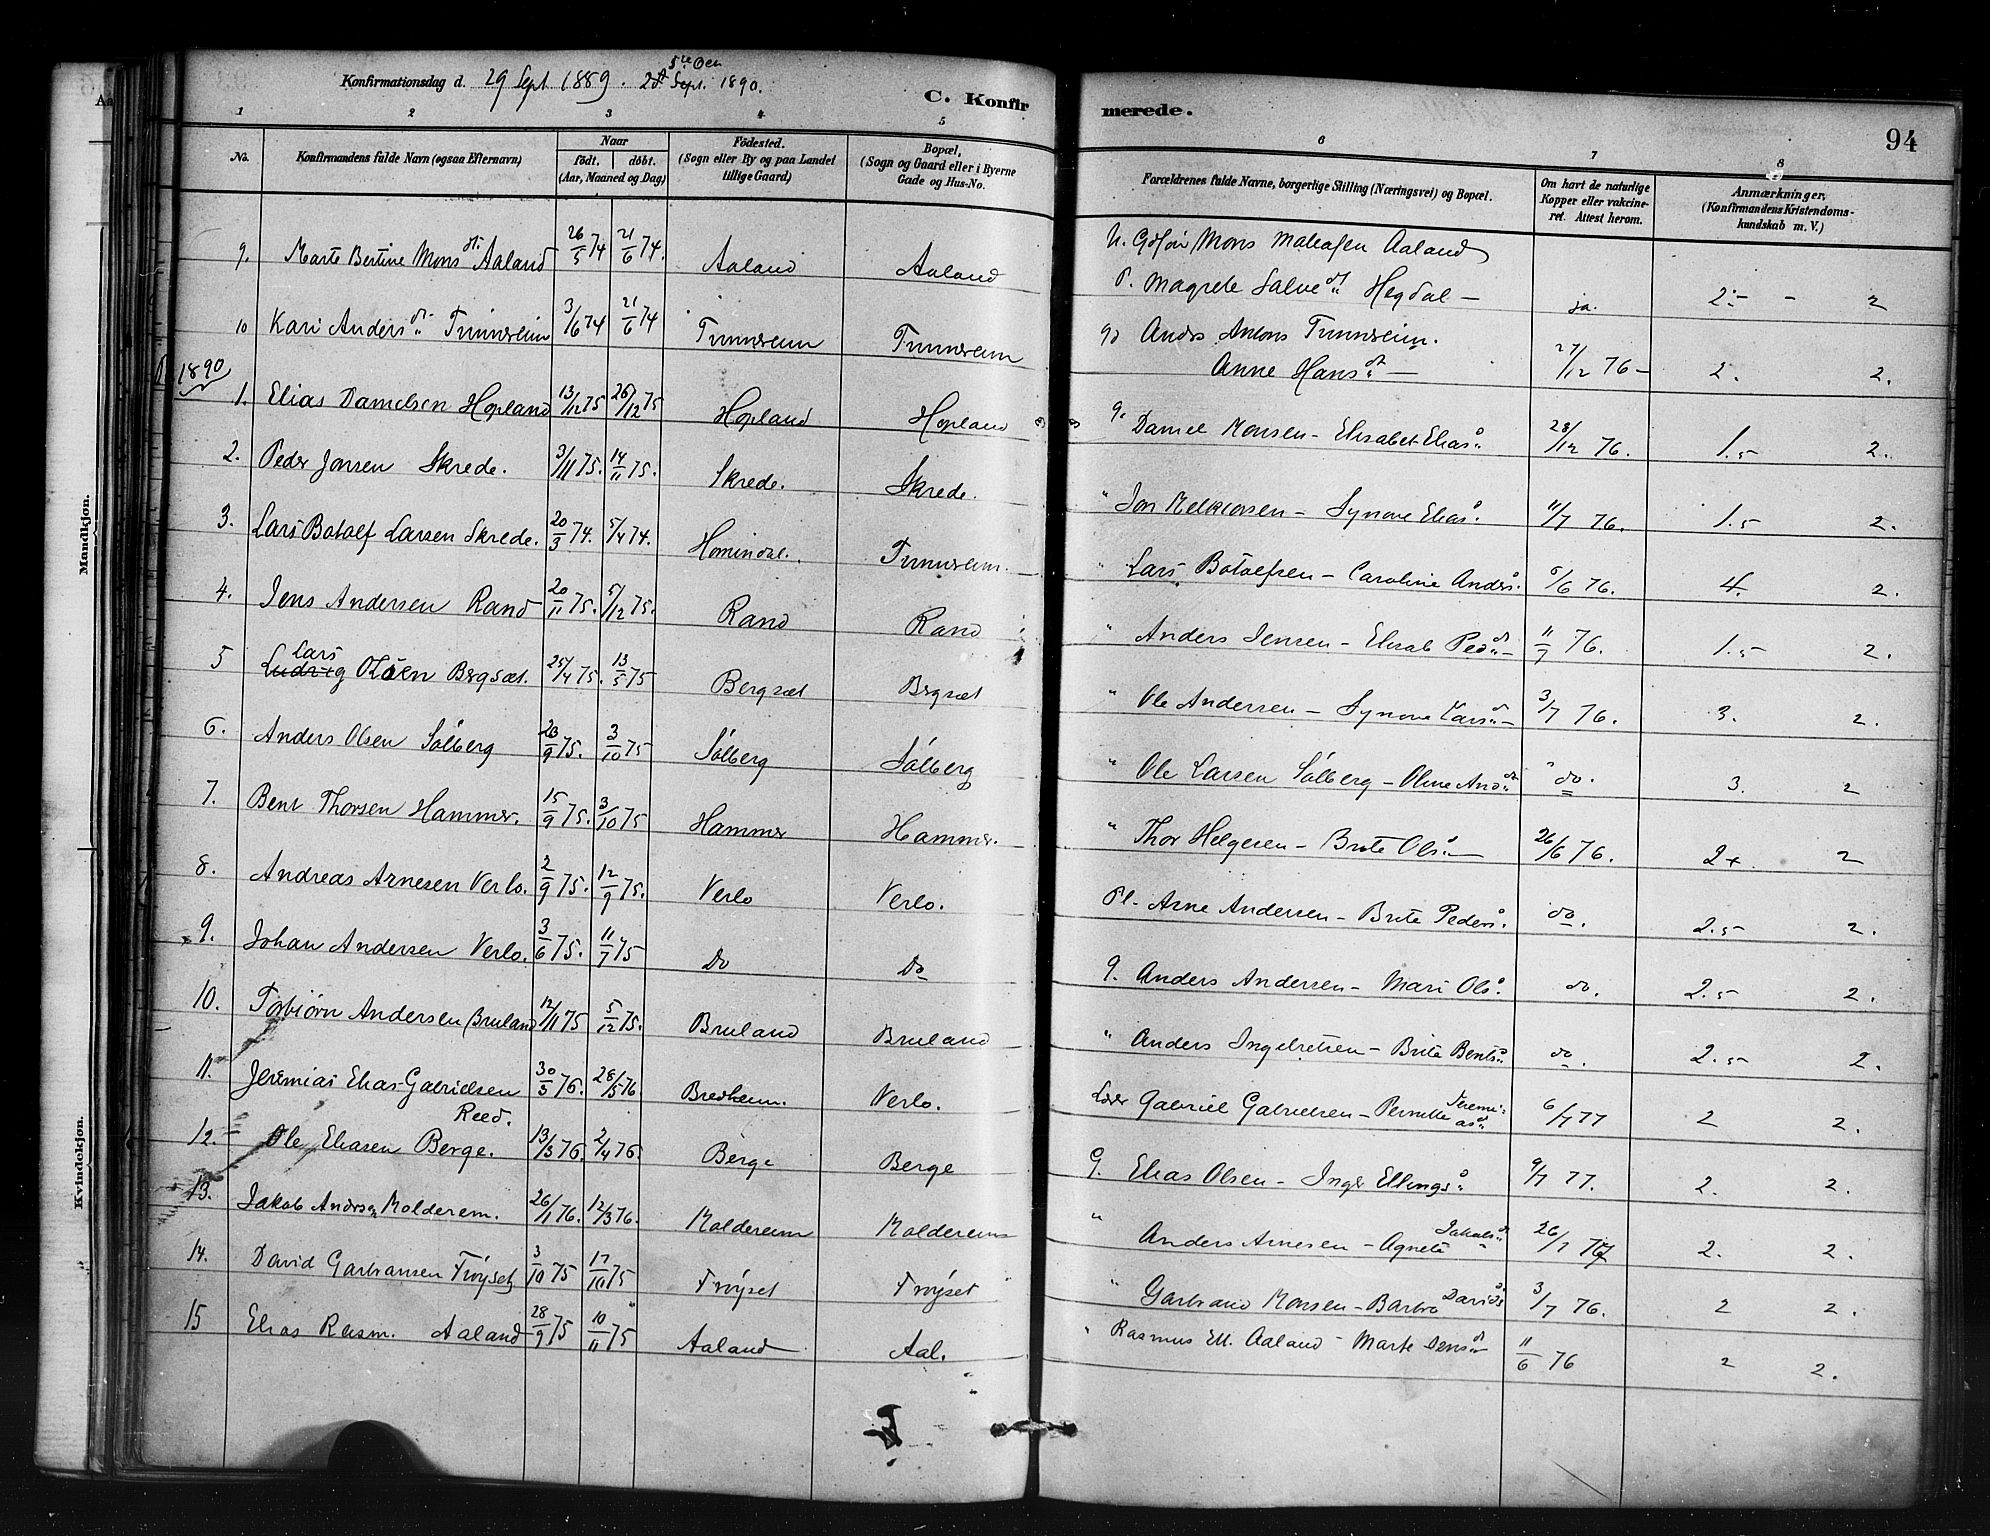 Konfirmationsdag d. 29 Sept 1889. 28 Sept. 1890.
5te Oct
C. Konfirmerede.
94
1 2 3 4 5 6 7 8
No.
Konfirmandens fulde Navn (ogsaa Efternavn)
Naar
födt. döbt.
(Aar, Maaned og Dag)
Födested.
(Sogn eller By og paa Landet
tillige Gaard)
Bopæl,
(Sogn og Gaard eller i Byerne
Gade og Hus-No.
Forældrenes fulde Navne, borgerlige Stilling (Næringsvei) og Bopæl.
Om havt de naturlige
Kopper eller vakcine-
ret. Attest herom.
Anmærkninger,
(Konfirmandens Kristendoms-
kundskab m. V.)
Aa
Mandkjøn.
Kvindekjøn.
9. Marte Bertine Mons dt. Aaland 26/5 74 21/6 74. Aaland Aaland Mons Aaland
P. Magrete Salve dt Hegdal — ja. 2.- - 2
10 Kari Anders dt. Tunnseim 3/6 74 21/6 74 Tunnseim Tunnseim Anders Antons Tunnseim.
Anne Hans dt — 27/12 76 — 2. 2.
1890
1. Elias Danielsen Hopland 13/12 75 26/12 75 Hopland Hopland g. Daniel Monsen - Elisabet Elias d 28/12 76. 1.5 2.
2. Peder Jonsen Skrede. 3/11 75. 14/11 75. Skrede. Skrede. " Jon Melkiorsen - Synove Elias d. 11/7 76. 1.5 2.
3. Lars Botolf Larsen Skrede. 20/3 74. 5/4 74. Hornindal. Tunnseim. " Lars Botolfsen - Caroline Anders d. 5/6 76. 4. 2.
4. Jens Andersen Rand 20/11 75. 5/12 75. Rand Rand " Anders Jensen - Elisab Ped dt - 11/7 76. 1.5 2.
5 Lars
Ludvig Olsen Bergset. 25/4 75. 13/5 75 Bergset Bergset " Ole Andersen - Synove Lars d - 3/7 76. 3. 2.
6. Anders Olsen Sølberg 23/9 75. 3/10 75 Sølberg Sølberg " Ole Larsen Sølberg - Oline And dt " do. 3. 2
7. Bent Thorsen Hammer. 15/9 75. 3/10 75 Hammer Hammer. " Thor Helgesen - Brite Ols d — 26/6 76. 2+. 2
8. Andreas Arnesen Verlo. 2/9 75. 12/9 75. Verlo Verlo. Pl. Arne Andersen - Brite Peders d. do. 2.5 2.
9. Johan Andersen Verlo. 3/6 75. 11/7 75 Do Do g. Anders Andersen - Mari Ols d. do. 2.5 2.
10. Torbiørn Andersen Bruland 12/11 75 5/12 75. Bruland Bruland " Anders Ingebretsen - Brite Bents d. do. 2.5 2.
11. Jeremias Elias Gabrielsen
Reed. 30/3 76. 28/5 76 Bredheim. Verlo. Gabriel Gabrielsen - Pernille Jeremi-
as d 6/7 77 2 2.
12. Ole Eliasen Berge. 13/3 76. 2/4 76. Berge Berge G. Elias Olsen - Inger Ellings d. 9/7 77. 2. 2.
13. Jakob Andersen Moldereim. 26/1 76. 12/3 76. Moldereim Moldereim " Anders Arnesen - Agnete Jakobs d 26/7 77 2. 2.
14. David Garbransen Frøyset 3/10 75 17/10 75 Frøyset Frøyset " Garbrand Monsen - Barbro Davids d 3/7 76. 2 2.
15 Elias Rasm. Aaland 28/9 75 10/11 75 Aaland Aal. " Rasmus Ell. Aaland - Marte Jens dt 11/6 76 2 2.